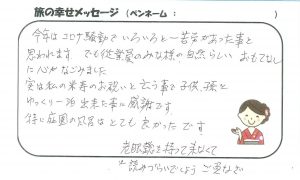 旅の幸せメッセージ (ペンネーム: )
今年はコロナ騒動でいろいろと御苦労があった事と
思われます でも従業員のみな様の自然らしい おもてなし
に心がなごみました
実は私の米寿のお祝いと云う事で子供、孫と
ゆっくり一泊出来た事に感謝です
特に庭園の風景はとても良かったです
老眼鏡を持って来なくて
読みづらいでしょう ご免なさい